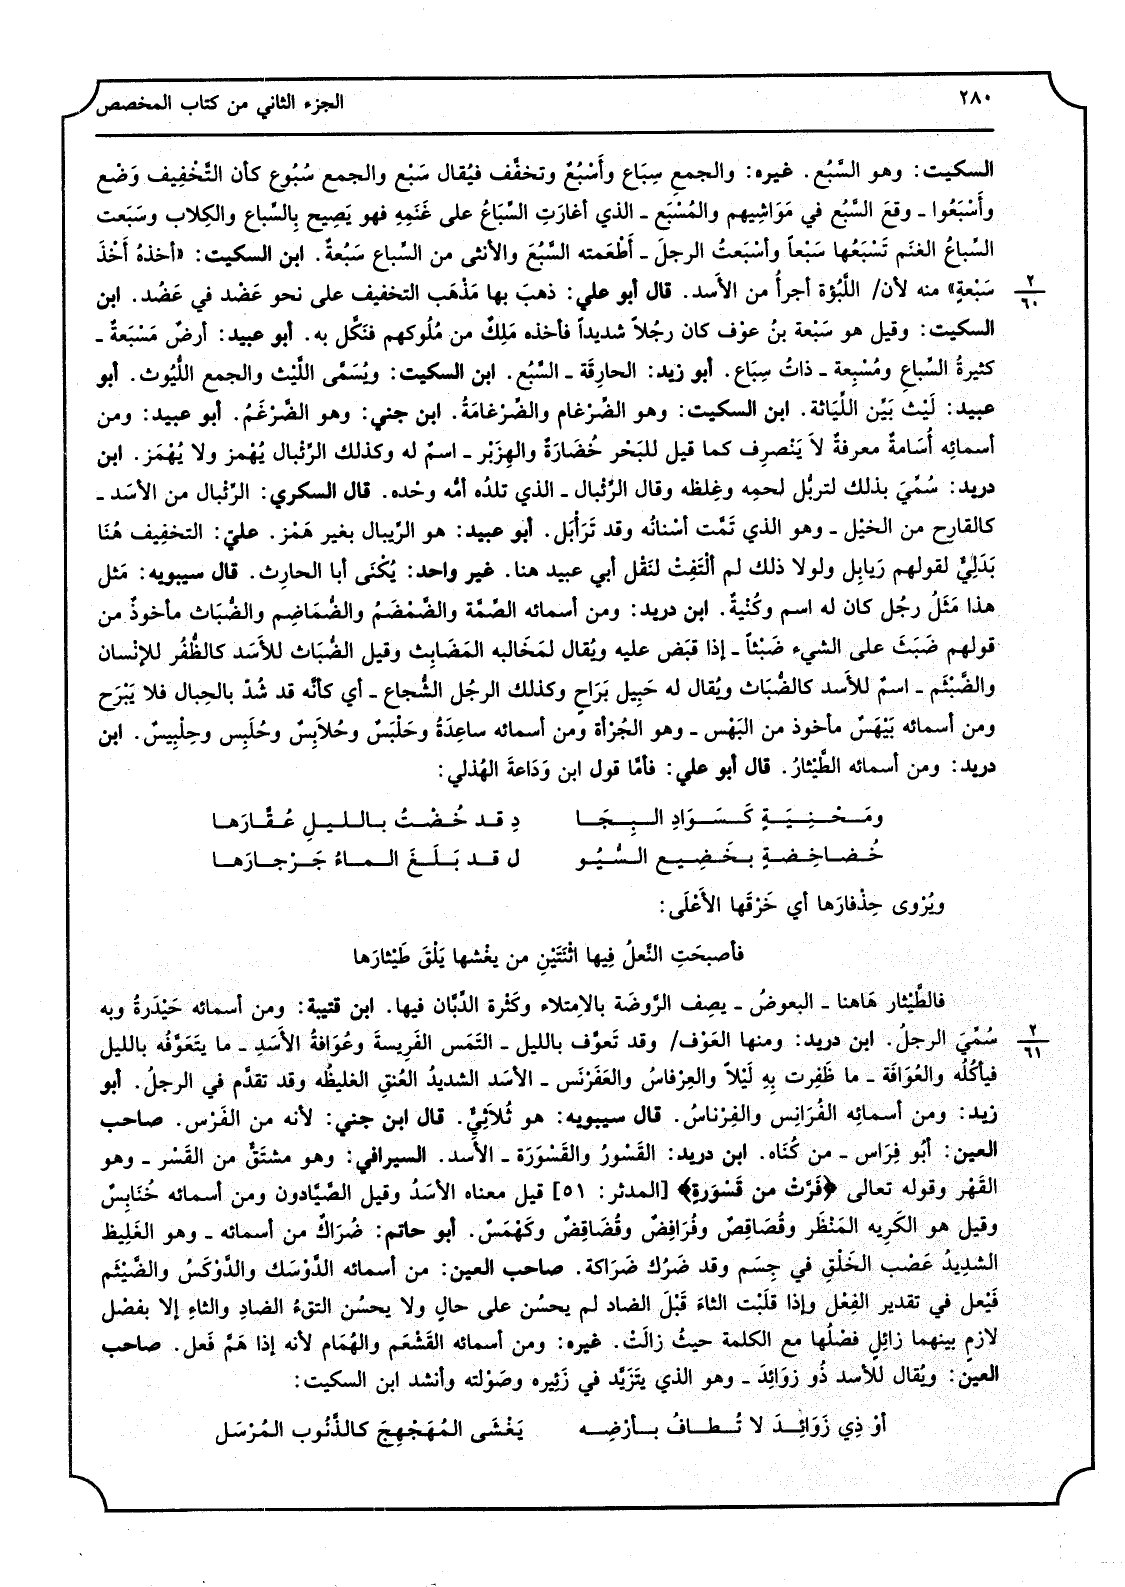 ٢٨٠
الجزء الثاني من كتاب المخصص
السكيت: وهو السَّبُع. غيره: والجمع سِبَاع وأَسْبُعٌ وتخفَّف فيُقال سَبْع والجمع سُبُوع كأن التَّخْفِيف وَضْع
وأَسْبَعُوا ـ وقعَ السَّبُع في مَوَاشِيهم والمُسْبَع ـ الذي أغارَتِ السِّبَاعُ على غَنَمِهِ فهو يَصِيح بِالسِّباع والكِلاب وسَبَعت
السِّباعُ الغنَم تَسْبَعُها سَبْعاً وأسْبَعتُ الرجلَ ـ أَطْعَمته السَّبُعَ والأنثى من السِّباع سَبُعةٌ. ابن السكيت: «أخذهُ أَخْذَ
سَبْعةٍ» منه لأن/ اللَّبُؤة أجرأُ من الأسد. قال أبو علي: ذهبَ بها مَذْهَب التخفيف على نحو عَضْد في عَضُد. ابن
٢
٦٠
السكيت: وقيل هو سَبْعة بنُ عوْف كان رجُلاً شديداً فأخذه مَلِكٌ من مُلُوكهم فنَكَّل به. أبو عبيد: أرضٌ مَسْبَعةٌ ـ
كثيرةُ السِّباعِ ومُسْبِعة ـ ذاتُ سِبَاع. أبو زيد: الحارِقَة ـ السَّبُع. ابن السكيت: ويُسَمَّى اللَّيْث والجمع اللُّيُوث. أبو
عبيد: لَيْث بَيِّن اللِّيَاثة. ابن السكيت: وهو الضِّرْغام والضِّرْغامَةُ. ابن جني: وهو الضِّرْغَمُ. أبو عبيد: ومن
أسمائِه أُسَامةٌ معرفةٌ لاَ يَنْصرِف كما قيل للبَحْر خُضَارَةٌ والهِزَبْر ـ اسمٌ له وكذلك الرِّئْبال يُهْمز ولا يُهْمَز. ابن
دريد: سُمِّيَ بذلك لتربُّل لحمِه وغِلظه وقال الرِّئْبال ـ الذي تلدُه أمُّه وحْده. قال السكري: الرِّئْبال من الأسَد ـ
كالقارِح من الخيْل ـ وهو الذي تَمَّت أسْنانُه وقد تَرَأْبَل. أبو عبيد: هو الرِّيبال بغير هَمْز. عليّ: التخفِيف هُنَا
بَدَلِيٌّ لقولهم رَيابِل ولولا ذلك لم ألْتَفِتْ لنَقْل أبي عبيد هنا. غير واحد: يُكْنَى أبا الحارِث. قال سيبويه: مَثل
هذا مَثَلُ رجُل كان له اسم وكُنْيةٌ. ابن دريد: ومن أسمائه الصِّمَّة والضَّمْضَمُ والضُّمَاضِم والضُّبَاث مأخوذٌ من
قولهم ضَبَثَ على الشيء ضَبْثاً ـ إذا قبَض عليه ويُقال لمَخالبه المَضابِث وقيل الضُّبَاث للأسَد كالظُّفُر للإنْسان
والضَّبْثَم ـ اسمٌ للأسد كالضُّبَاث ويُقال له حَبِيل بَرَاحٍ وكذلك الرجُل الشُّجاع ـ أي كأنَّه قد شُدّ بالحِبال فلا يَبْرَح
ومن أسمائه بَيْهَسٌ مأخوذ من البَهْس ـ وهو الجُرْأة ومن أسمائه ساعِدَةُ وحَلْبَسٌ وحُلاَبِسٌ وحُلَبِس وحِلْبِيسٌ. ابن
دريد: ومن أسمائه الطَّيْثارُ. قال أبو علي: فأمَّا قول ابن وَدَاعةَ الهُذلي:
ومَـحْـنِـيَـةٍ كَـسَـوَادِ الـبِـجَـا دِ قـد خُـضْـتُ بـالـلـيـلِ عُـقَّـارَهـا
خُـضـاخِـضـةٍ بـخَـضِـيـعِ الـسُّـيُـو ل قـد بَـلَـغَ الـمـاءُ جَـرْجـارَهـا
ويُرْوى حِذْفارَها أي خَرْقَها الأَعْلَى:
فأصبحَتِ النَّعلُ فِيها اثْنَتَيْنِ من يغْشها يَلْقَ طَيْثارَها
فالطَّيْثار هَاهنا ـ البعوضُ ـ يصِف الرَّوضَة بالاِمتلاء وكَثْرة الذِّبَّان فيها. ابن قتيبة: ومن أسمائه حَيْدَرةُ وبه
سُمِّيَ الرجلُ. ابن دريد: ومنها العَوْف/ وقد تَعوَّف بالليل ـ التَمَس الفَرِيسة وعُوَافةُ الأسَدِ ـ ما يتَعَوَّفُه بالليل
٢
٦١
فيأكُلُه والعُوَافَة ـ ما ظَفِرت بِهِ لَيْلاً والعِرْفاسُ والعَفَرْنَس ـ الأسَد الشديدُ العُنقِ الغليظُه وقد تقدَّم في الرجلُ. أبو
زيد: ومن أسمائِه الفُرَانِس والفِرْناسُ. قال سيبويه: هو ثُلاَثِيٌّ. قال ابن جني: لأنه من الفَرْس. صاحب
العين: أبُو فِرَاس ـ من كُنَاه. ابن دريد: القَسْورُ والقَسْوَرَة ـ الأسد. السيرافي: وهو مشتَقٌّ من القَسْر ـ وهو
القَهْر وقوله تعالى ﴿فَرَّتْ من قَسْوَرةٍ﴾ [المدثر: ٥١] قيل معناه الأسَدُ وقيل الصَّيَّادون ومن أسمائه خُنَابِسٌ
وقيل هو الكَرِيه المَنْظَر وقُصَاقِصٌ وفُرَافِضٌ وقُضَاقِضٌ وكَهْمَسٌ. أبو حاتم: ضُرَاكٌ من أسمائه ـ وهو الغَلِيظ
الشدِيدُ عَصْب الخَلْقِ في جِسَم وقد ضَرُك ضَرَاكة. صاحب العين: من أسمائه الدَّوْسَك والدَّوْكَسُ والضَّيْثَم
فَيْعل في تقدير الفِعْل وإذا قلَبْت الثاءَ قَبْلَ الضاد لم يحسُن على حالٍ ولا يحسُن التقءُ الضادِ والثاءِ إلا بفصْل
لازمٍ بينهما زائلٍ فضْلُها مع الكلمة حيثُ زالَتْ. غيره: ومن أسمائه القَشْعَم والهُمَام لأنه إذا هَمَّ فَعل. صاحب
العين: ويُقال للأسد ذُو زوَائِدَ ـ وهو الذي يتَزَيَّد في زَئِيره وصَوْلته وأنشد ابن السكيت:
أوْ ذِي زَوَائِـدَ لا تُـطـافُ بـأرْضِـه يَغْشَى المُهَجْهِجَ كالذَّنُوب المُرْسَل